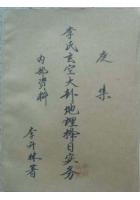 庚集
李氏玄空大卦地理择日实务
内部资料
李升林著